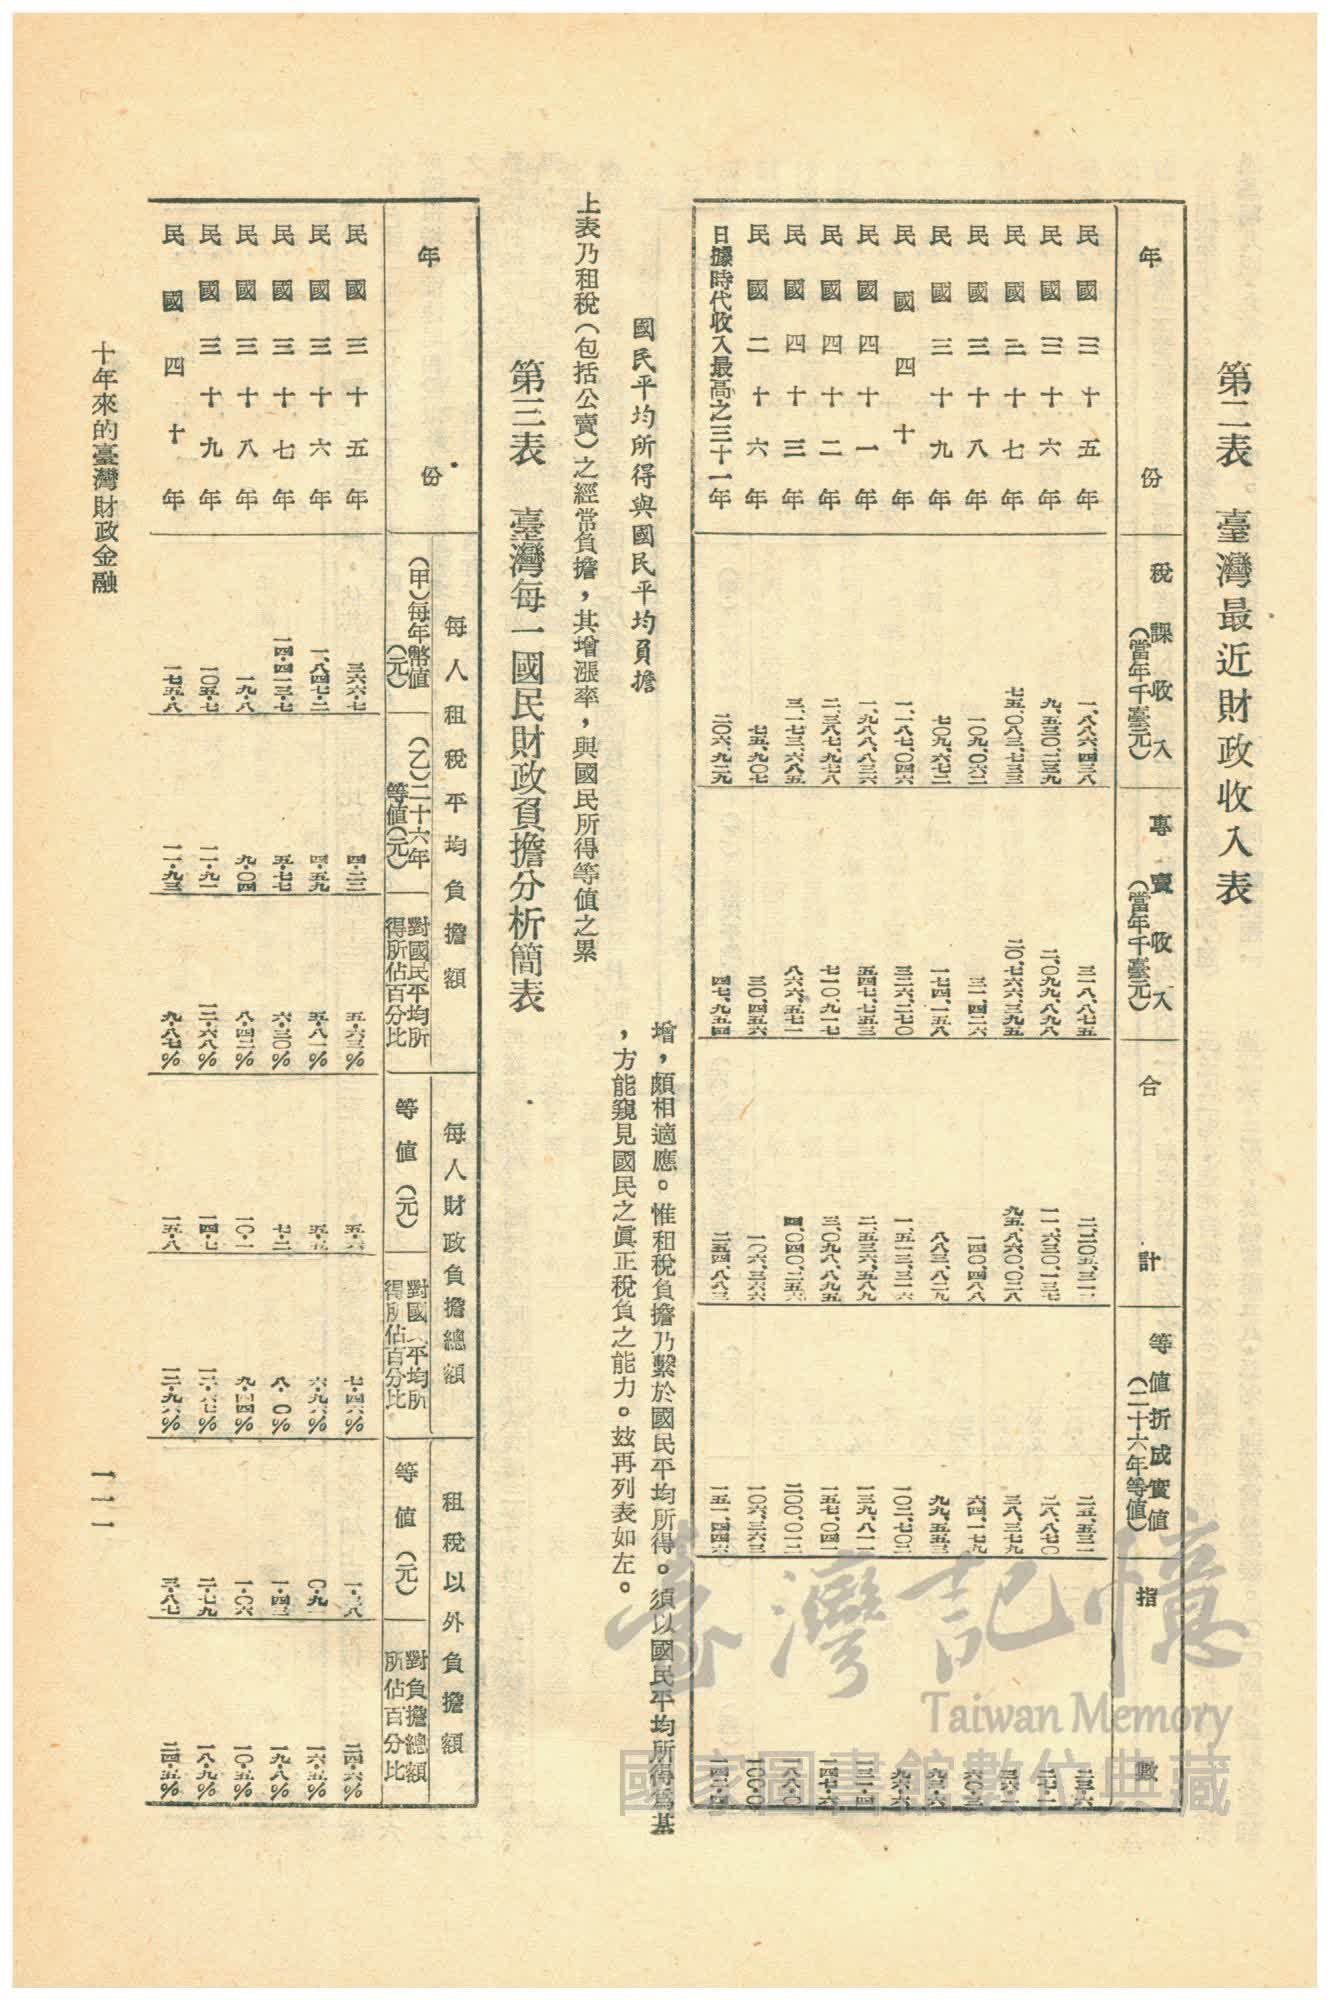 第二表　臺灣最近財政收入表
年份　稅課收入（當年千臺元）　專賣收入（當年千臺元）　合計　等值折成實值（二十六年等值）　指數
民國三十五年　一、八八六、四三八　三一八、八七五　二五、五三一
民國三十六年　九、五三〇、二三九　二、〇九九、八九八　一一、六三〇、一三七　二八、八七〇　二七・一
民國三十七年　七五、〇八三、七三三　九五、八六〇、〇二八　三八、三七九　三六・一
民國三十八年　一〇九、〇六二　三一、四二六　一四〇、四八八　六四、一七九　六〇・三
民國三十九年　七〇九、六七二　一七四、一五八　八八三、八二九　九九、五五三　九三・六
民國四十年　一、一八七、〇四六　三二六、二七〇　一、五一三、三一六　一〇二、七〇三　九六・六
民國四十一年　一、九八八、八三六　五四七、七五三　二、五三六、五八九　一三九、八一一　一三一・四
民國四十二年　二、三八七、九七八　七一〇、九一七　三、〇九八、八九五　一五七、〇四一　一四七・六
民國四十三年　三、一七三、六八五　八六六、五七一　四、〇四〇、二五六　二〇〇、〇一二　一八八・〇
民國二十六年　七五、九〇七　三〇、四五六　一〇六、三六六　一〇六、三六三　一〇〇・〇
日據時代收入最高之三十一年　二〇六、九二九　四七、九五四　二五四、八八三　一五一、四四六　一四二・四
國民平均所得與國民平均負擔
上表乃租稅（包括公賣）之經常負擔，其增漲率，與國民所得等值之累
增，頗相適應。惟租稅負擔乃繫於國民平均所得。須以國民平均所得爲基
，方能窺見國民之眞正稅負之能力。玆再列表如左。
第三表　臺灣每一國民財政負擔分析簡表
年份　每人租稅平均負擔額　每人財政負擔總額　租稅以外負擔額
（甲）每年幣值（元）　（乙）二十六年等值（元）　對國民平均所得所佔百分比　等值（元）　對國　平均所得所佔百分比　等值（元）　對負擔總額所佔百分比
民國三十五年　三六六・七　四・二三　五・六三%　五・六　七・四六%　一・三八　二四・六%
民國三十六年　一、八四七・二　四・五九　五・八一%　五・五　六・九六%　〇・九一　一六・五%
民國三十七年　一四・四一三・七　五・七七　六・三〇%　七・二　八・〇%　一・四三　一九・八%
民國三十八年　一九・八　九・〇四　八・四二%　一〇・一　九・四四%　一・〇六　一〇・五%
民國三十九年　一〇五・七　一一・九一　一二・六八%　一四・七　一五・六七%　二・七九　一八・九%
民國四十年　一七五・八　一一・九三　九・八七%　一五・八　一二・九六%　三・八七　二四・五%
十年來的臺灣財政金融
一一一
臺灣記憶
Taiwan Memory
國家圖書館數位典藏